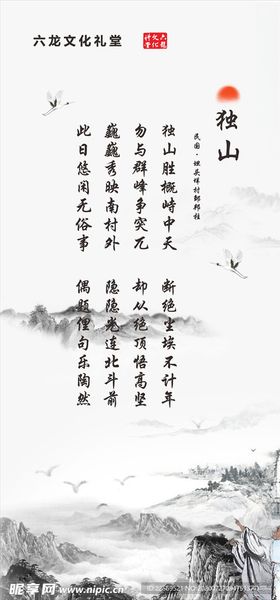 六龙文化礼堂
独山
民国·坦头垟村
独山胜概峙中天
断绝尘埃不计年
勿与群峰争突兀
却从绝顶悟高坚
巍巍秀映南村外
隐隐光连北斗前
此日悠闲无俗事
偶题俚句乐陶然
昵享网 www.nipic.cn